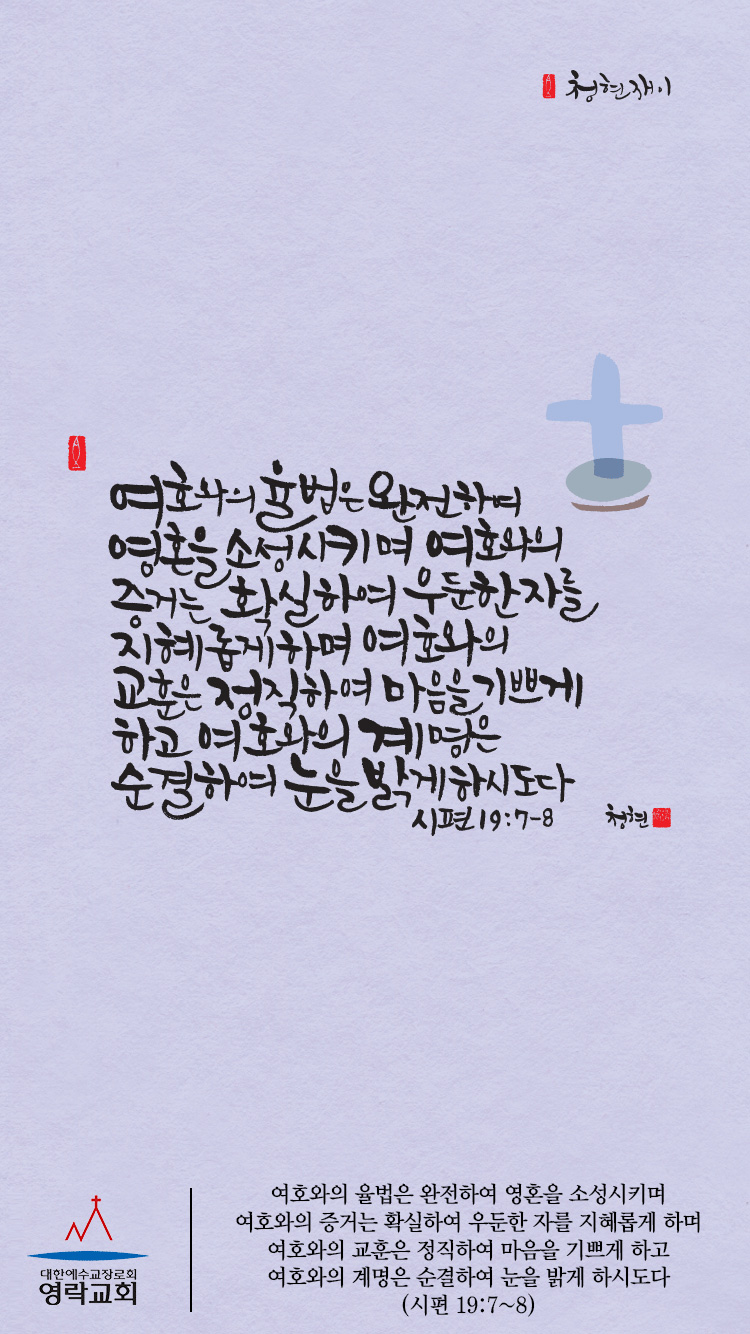 청현재이
여호와의 율법은 완전하여
영혼을 소성시키며 여호와의
증거는 확실하여 우둔한 자를
지혜롭게 하며 여호와의
교훈은 정직하여 마음을 기쁘게
하고 여호와의 계명은
순결하여 눈을 밝게 하시도다
시편 19:7-8
청현
대한예수교장로회
영락교회
여호와의 율법은 완전하여 영혼을 소성시키며
여호와의 증거는 확실하여 우둔한 자를 지혜롭게 하며
여호와의 교훈은 정직하여 마음을 기쁘게 하고
여호와의 계명은 순결하여 눈을 밝게 하시도다
(시편 19:7~8)